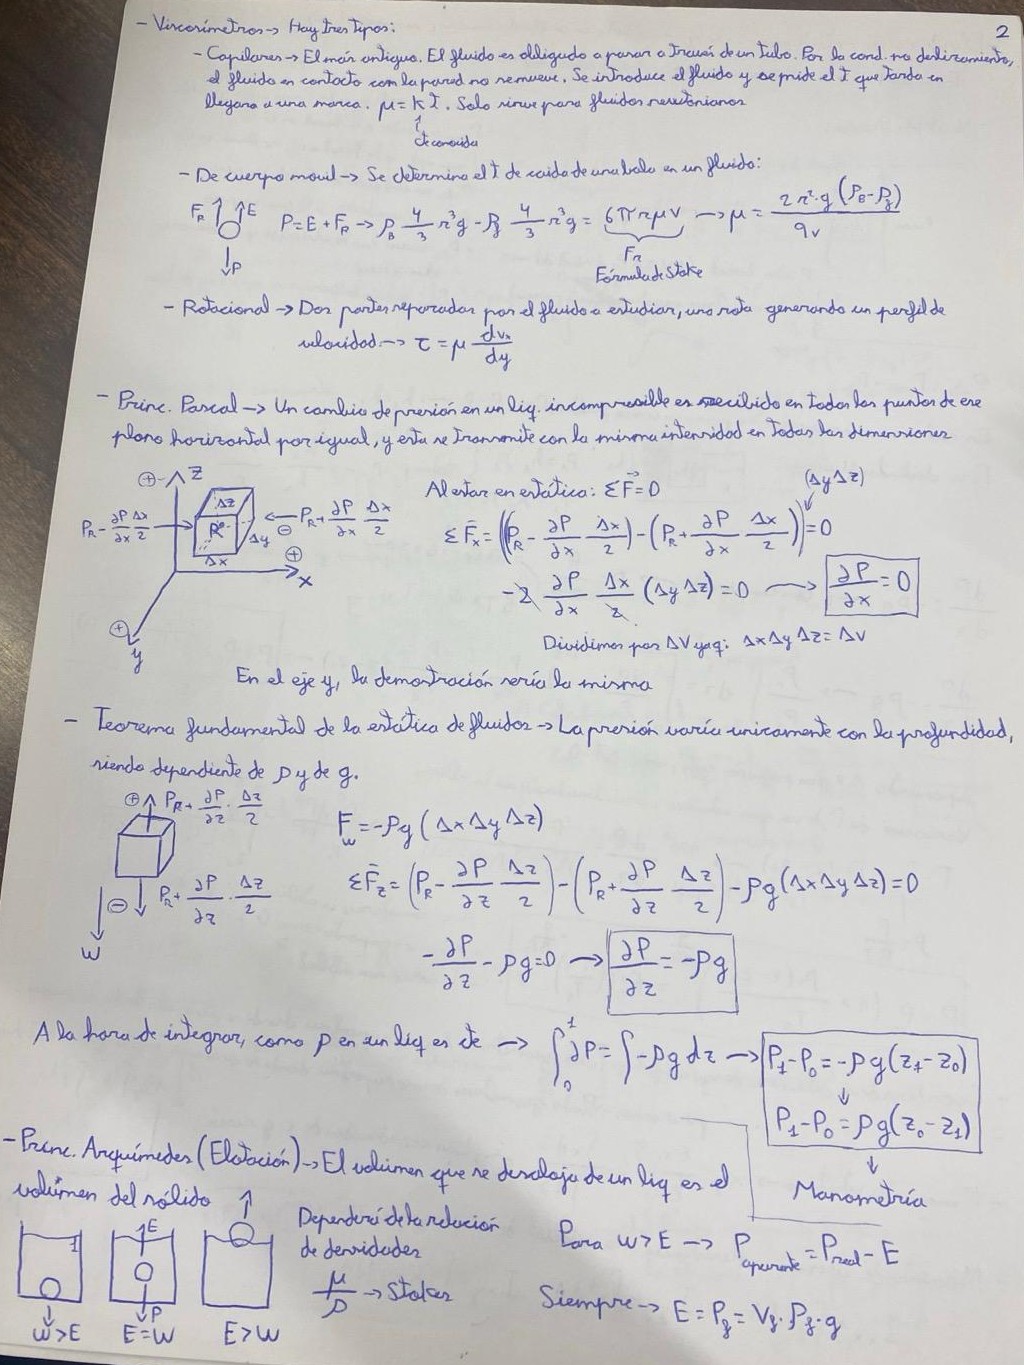 2
- Viscosímetros → Hay tres tipos:
- Capilares → El más antiguo. El fluido es obligado a pasar a través de un tubo. Por la cond. no deslizamiento,
el fluido en contacto con la pared no se mueve. Se introduce el fluido y se mide el t que tarda en
llegar a una marca. μ = K t. Solo sirve para fluidos newtonianos
↑
cte conocida
- De cuerpo movil → Se determina el t de caida de una bola en un fluido:
F_R ↑ ↑E P = E + F_R → ρ_B 4/3 π r³ g - ρ_f 4/3 π r³ g = 6 π r μ v → μ = 2 r² · g (ρ_B - ρ_f) / 9v
↓P F_R
Fórmula de Stoke
- Rotacional → Dos partes separadas por el fluido a estudiar, una rota generando un perfil de
velocidad → τ = μ dvₓ/dy
- Princ. Pascal → Un cambio de presión en un liq. incompresible es recibido en todos los puntos de ese
plano horizontal por igual, y esta se transmite con la misma intensidad en todas las dimensiones
⊕ Z
Al estar en estática: Σ F⃗ = 0 (Δy Δz)
P_R - ∂P/∂x Δx/2 → Δz P_R Δy Δx ← P_R + ∂P/∂x Δx/2 ⊖
Σ F⃗ₓ = ((P_R - ∂P/∂x Δx/2) - (P_R + ∂P/∂x Δx/2)) = 0
⊕ x
-2 ∂P/∂x Δx/2 (Δy Δz) = 0 → ∂P/∂x = 0
⊕ y
Dividimos por ΔV ya q: Δx Δy Δz = ΔV
En el eje y, la demostración sería la misma
- Teorema fundamental de la estática de fluidos → La presión varía unicamente con la profundidad,
siendo dependiente de ρ y de g.
⊕ ↑ P_R + ∂P/∂z · Δz/2
F_w = -ρg (Δx Δy Δz)
⊖ ↓ P_R + ∂P/∂z · Δz/2
Σ F⃗_z = (P_R - ∂P/∂z Δz/2) - (P_R + ∂P/∂z Δz/2) - ρg (Δx Δy Δz) = 0
W
-∂P/∂z - ρg = 0 → ∂P/∂z = -ρg
A la hora de integrar, como ρ en un liq es cte → ∫₀¹ ∂P = ∫ -ρg dz → P₁ - P₀ = -ρg (z₁ - z₀)
↓
P₁ - P₀ = ρg (z₀ - z₁)
↓
Manometría
- Princ. Arquímedes (Flotación) → El volúmen que se desaloja de un liq es el
volúmen del sólido
Dependerá de la relación
de densidades
μ/ρ → Stokes
E
P
W > E E = W E > W
Para W > E → P_aparente = P_real - E
Siempre → E = P_f = V_f · ρ_f · g